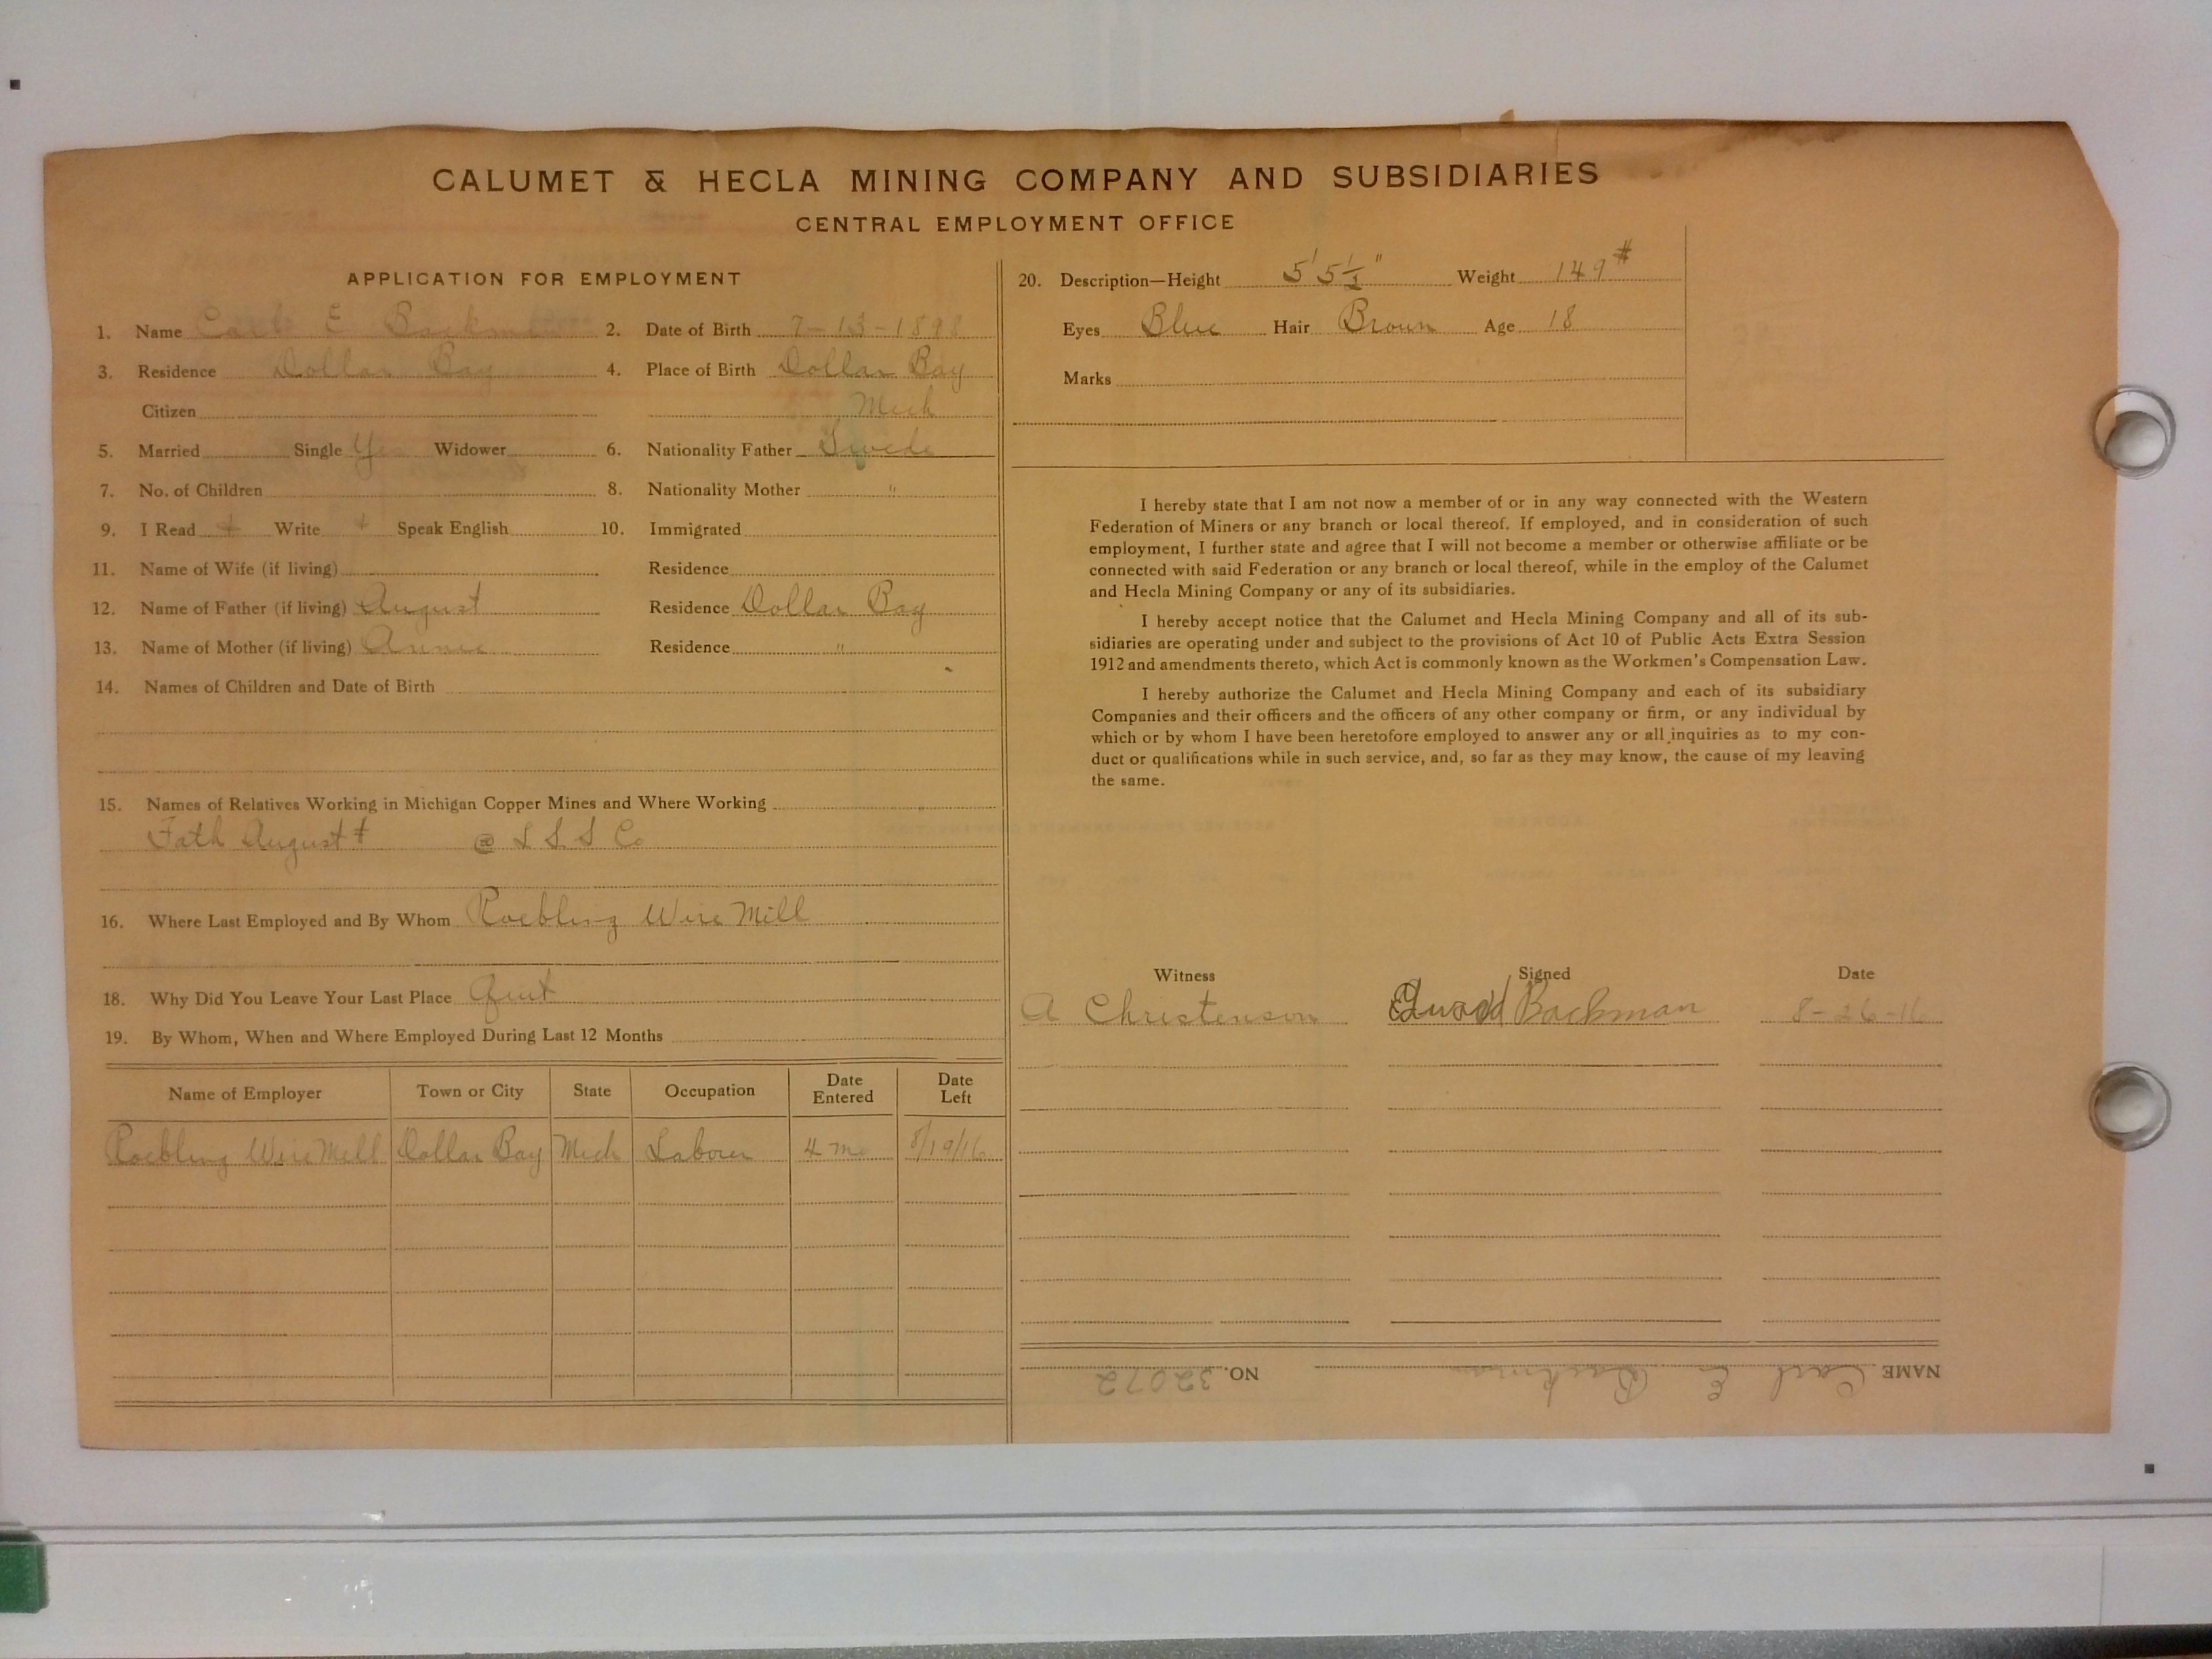 CALUMET & HECLA MINING COMPANY AND SUBSIDIARIES
CENTRAL EMPLOYMENT OFFICE
APPLICATION FOR EMPLOYMENT
1. Name Carl E Backman 2. Date of Birth 7-13-1898
3. Residence Dollar Bay 4. Place of Birth Dollar Bay
Citizen Mich
5. Married Single Yes Widower 6. Nationality Father Swede
7. No. of Children 8. Nationality Mother "
9. I Read + Write + Speak English 10. Immigrated
11. Name of Wife (if living) Residence
12. Name of Father (if living) August Residence Dollar Bay
13. Name of Mother (if living) Annie Residence "
14. Names of Children and Date of Birth
15. Names of Relatives Working in Michigan Copper Mines and Where Working
Fath August + @ L S S Co
16. Where Last Employed and By Whom Roebling Wire Mill
18. Why Did You Leave Your Last Place Quit
19. By Whom, When and Where Employed During Last 12 Months
Name of Employer Town or City State Occupation Date Entered Date Left
Roebling Wire Mill Dollar Bay Mich Laborer 4 mo 8/19/16
20. Description—Height 5' 5 1/2" Weight 149#
Eyes Blue Hair Brown Age 18
Marks
I hereby state that I am not now a member of or in any way connected with the Western
Federation of Miners or any branch or local thereof. If employed, and in consideration of such
employment, I further state and agree that I will not become a member or otherwise affiliate or be
connected with said Federation or any branch or local thereof, while in the employ of the Calumet
and Hecla Mining Company or any of its subsidiaries.
I hereby accept notice that the Calumet and Hecla Mining Company and all of its sub-
sidiaries are operating under and subject to the provisions of Act 10 of Public Acts Extra Session
1912 and amendments thereto, which Act is commonly known as the Workmen's Compensation Law.
I hereby authorize the Calumet and Hecla Mining Company and each of its subsidiary
Companies and their officers and the officers of any other company or firm, or any individual by
which or by whom I have been heretofore employed to answer any or all inquiries as to my con-
duct or qualifications while in such service, and, so far as they may know, the cause of my leaving
the same.
Witness Signed Date
A Christenson Edward Backman 8-26-16
NAME Carl E Backman NO. 32072